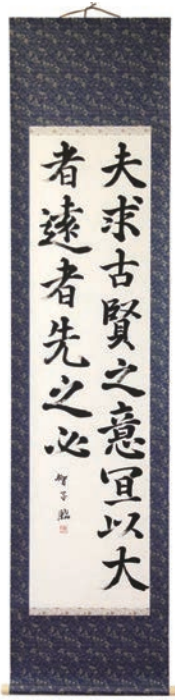 夫求古賢之意宜以大
者遠者先之必
智子臨